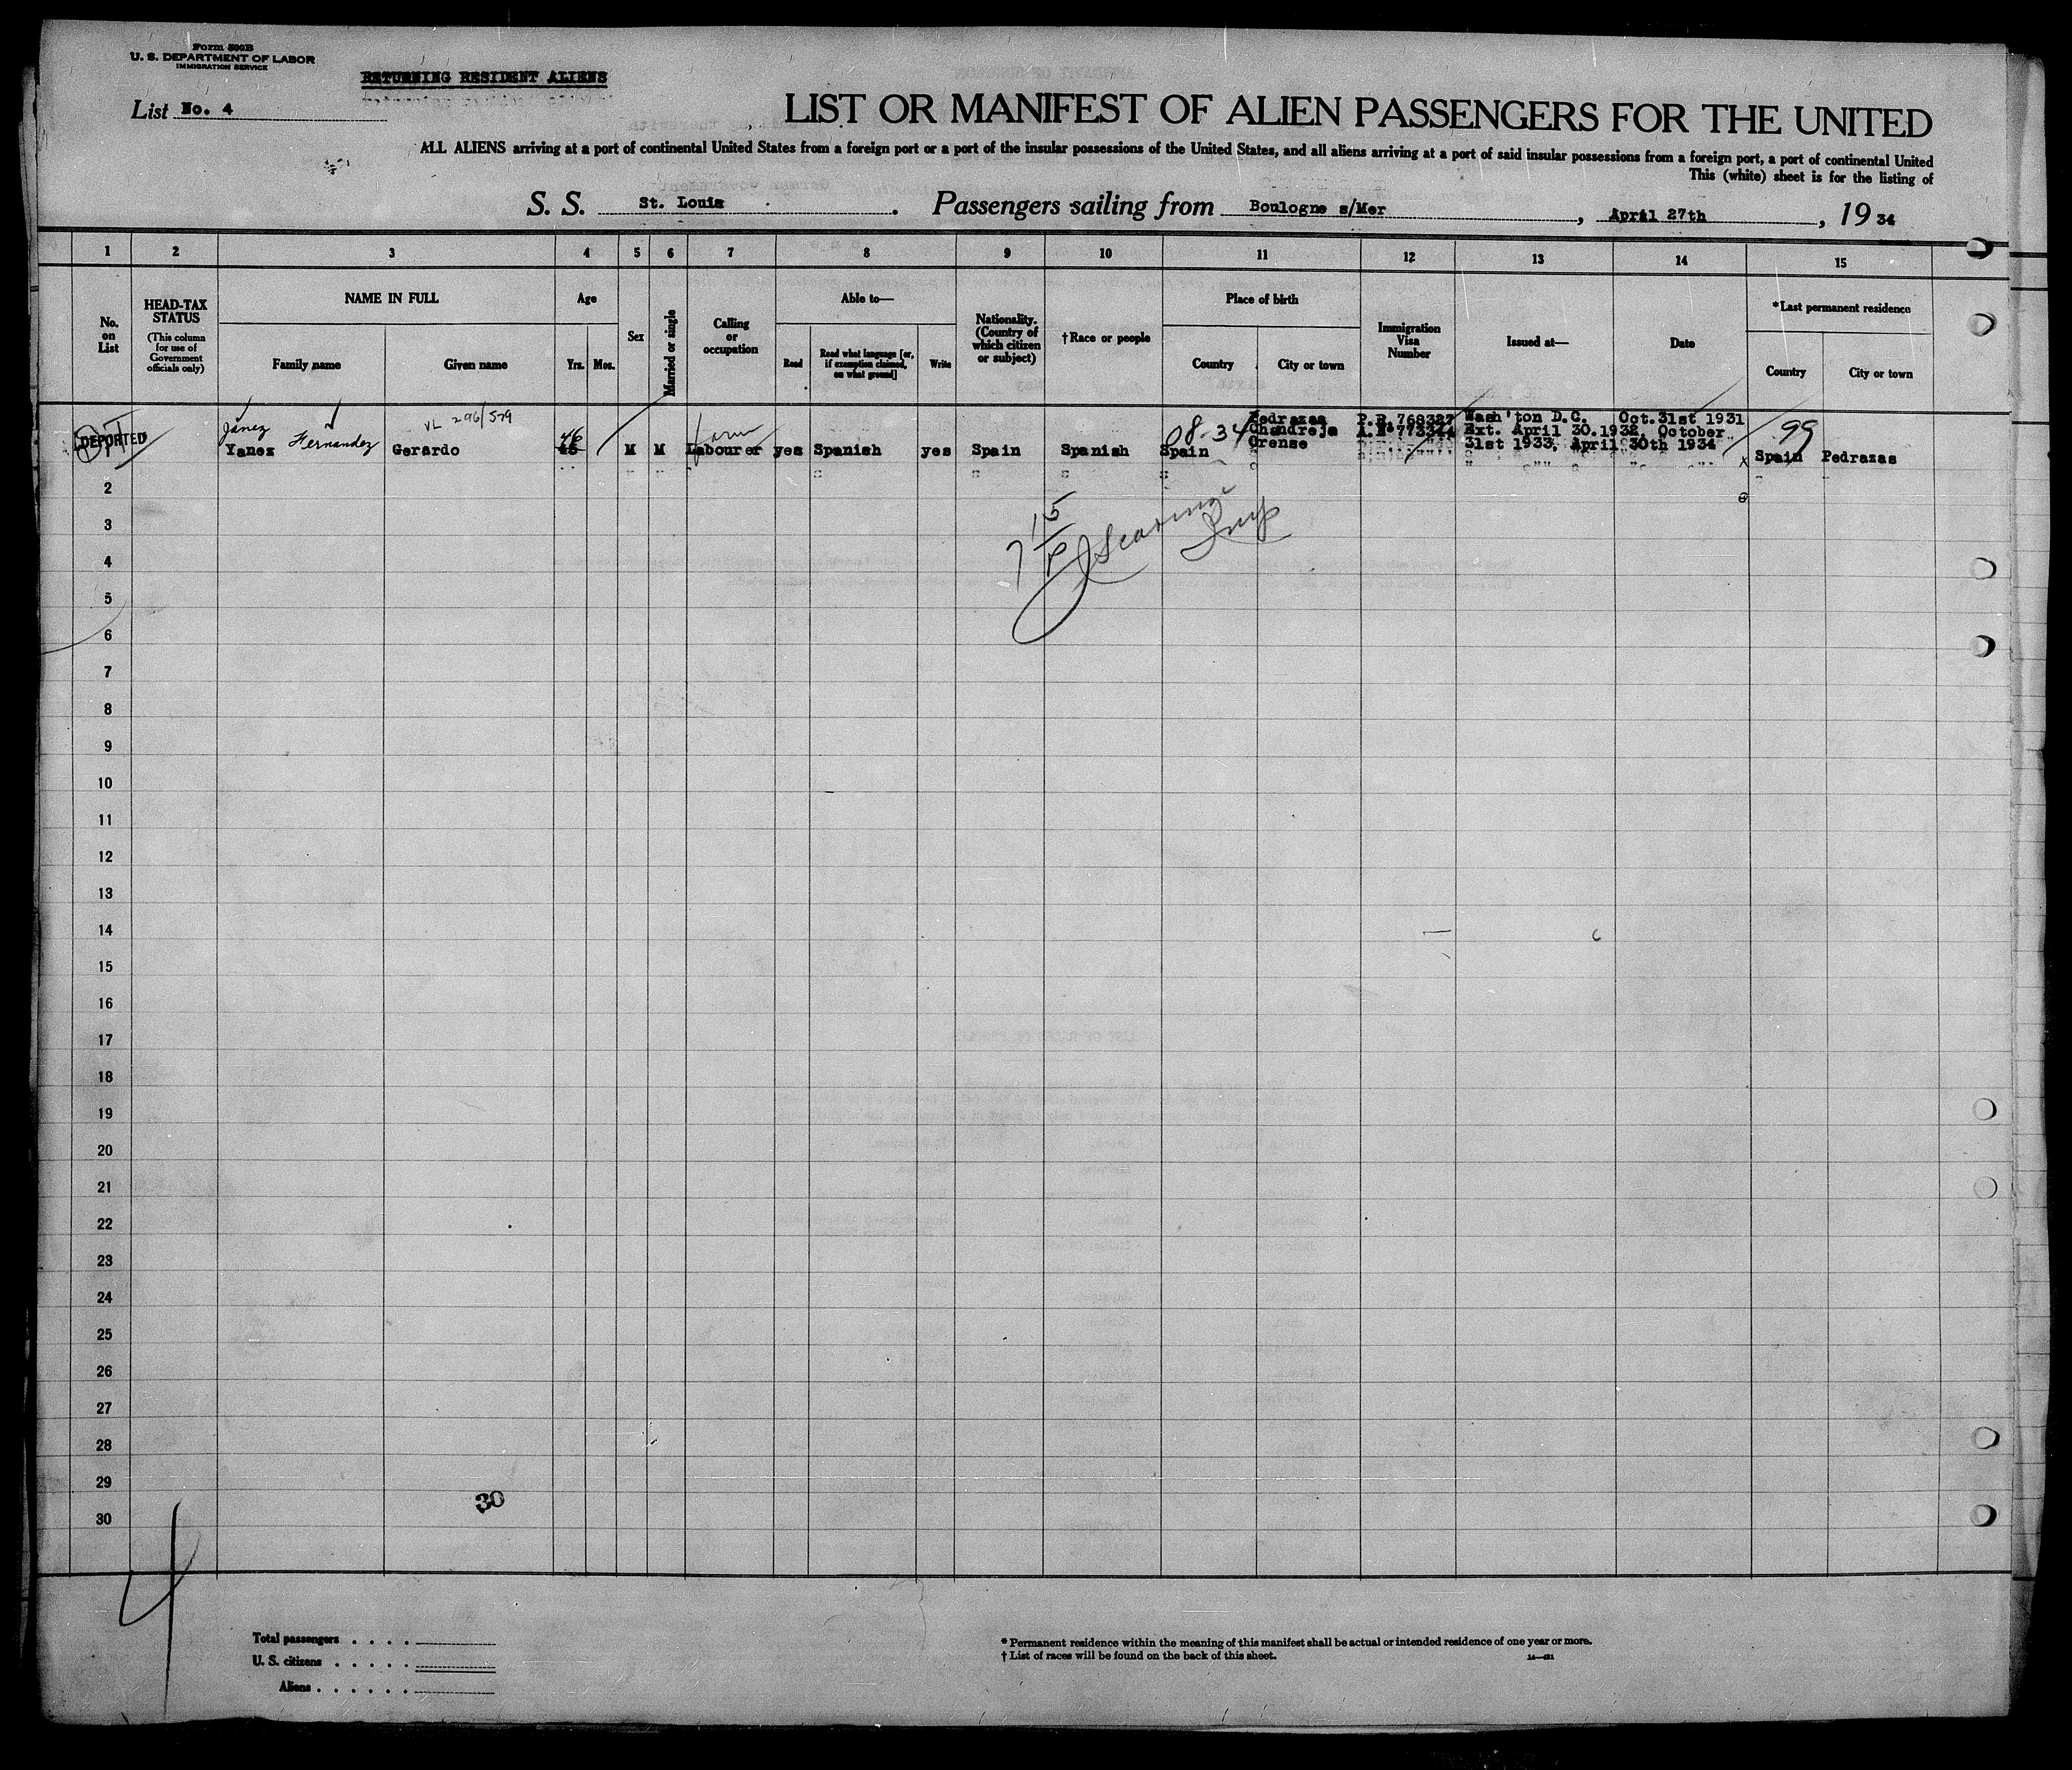 Form 500B
U. S. DEPARTMENT OF LABOR
IMMIGRATION SERVICE
RETURNING RESIDENT ALIENS
List No. 4
LIST OR MANIFEST OF ALIEN PASSENGERS FOR THE UNITED
ALL ALIENS arriving at a port of continental United States from a foreign port or a port of the insular possessions of the United States, and all aliens arriving at a port of said insular possessions from a foreign port, a port of continental United
This (white) sheet is for the listing of
S. S. St. Louis . Passengers sailing from Boulogne s/Mer , April 27th , 19 34
1 2 3 4 5 6 7 8 9 10 11 12 13 14 15
No. on List
HEAD-TAX STATUS
(This column for use of Government officials only)
NAME IN FULL
Family name
Given name
Age
Yrs.
Mos.
Sex
Married or single
Calling or occupation
Able to—
Read
Read what language [or, if exemption claimed, on what ground]
Write
Nationality. (Country of which citizen or subject)
† Race or people
Place of birth
Country
City or town
Immigration Visa Number
Issued at—
Date
*Last permanent residence
Country
City or town
VL 296/529
Janez
DEPORTED
Yanez Fernandez Gerardo
46
45
M M
farm
Labourer yes Spanish yes Spain Spanish
08-34
Spain
Pedrazas
Chandreja
Orense
P.R.768327
Wash'ton D.C. Oct.31st 1931
Ext. April 30.1932, October
31st 1933, April 30th 1934
99
Spain Pedrazas
2
3
4
5
6
7
8
9
10
11
12
13
14
15
16
17
18
19
20
21
22
23
24
25
26
27
28
29
30
30
4
Total passengers . . . .
U. S. citizens . . . . .
Aliens . . . . . .
* Permanent residence within the meaning of this manifest shall be actual or intended residence of one year or more.
† List of races will be found on the back of this sheet.